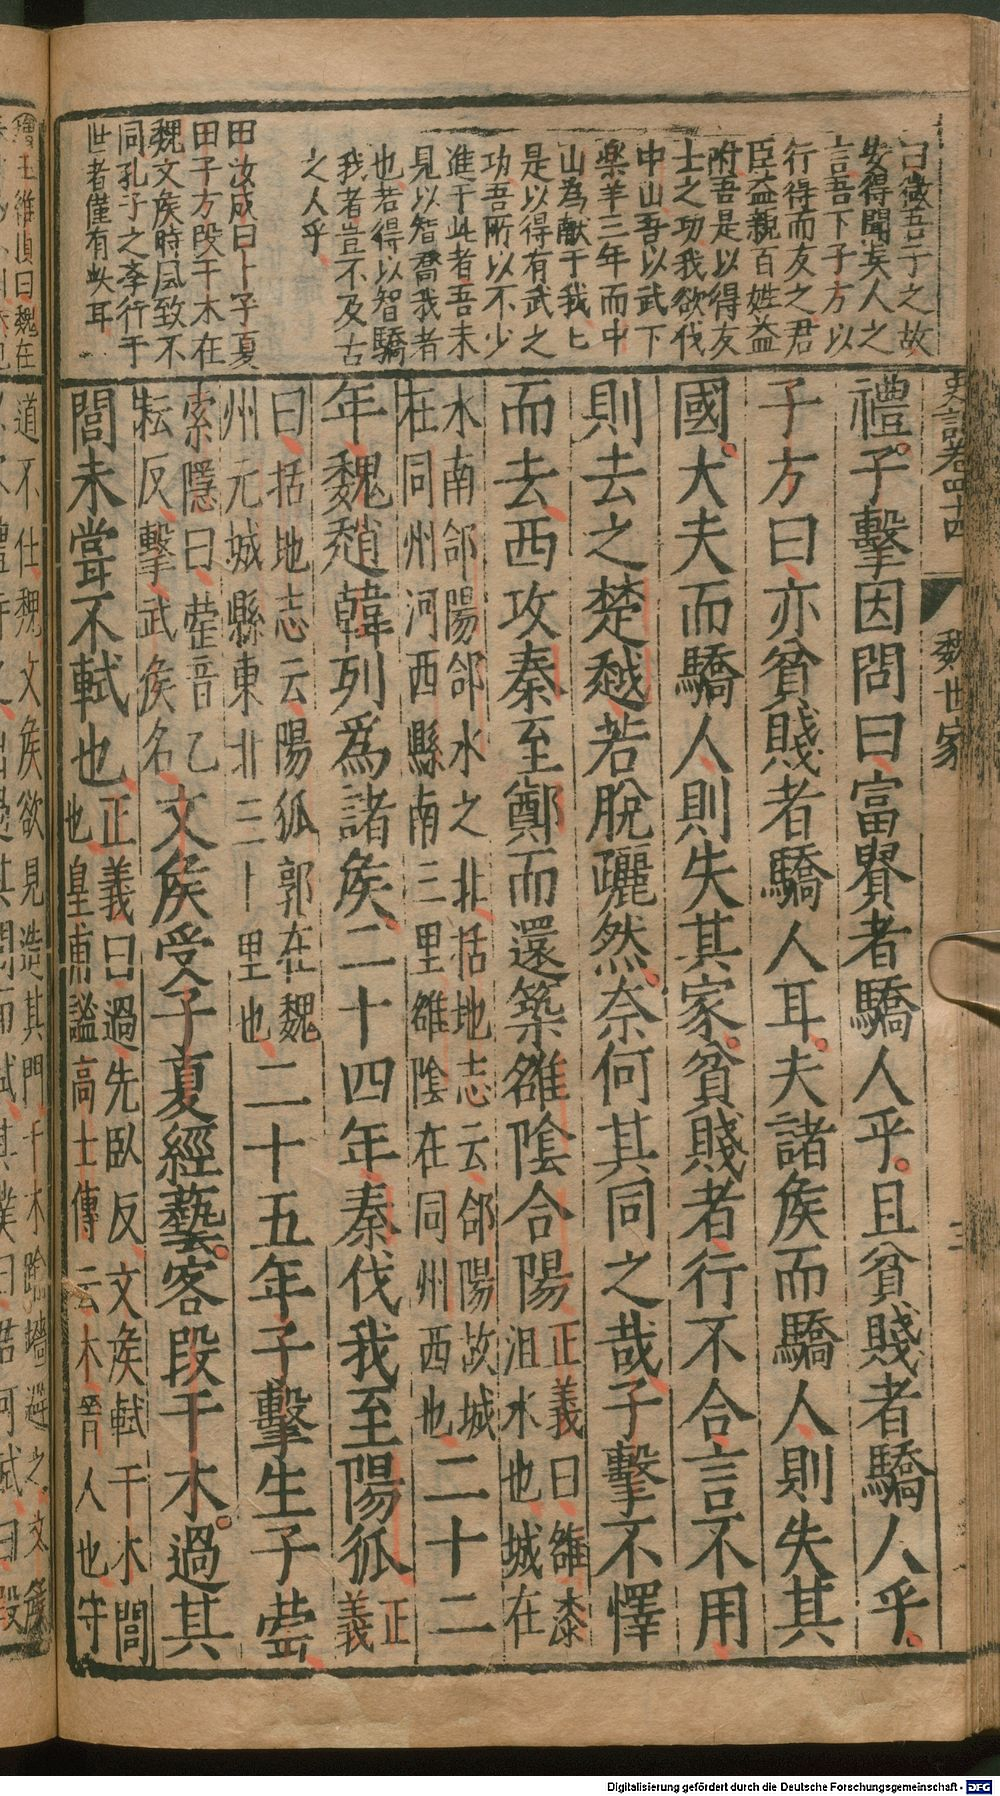 曰微吾子之故
安得聞矣人之
言吾下子方以
行得而友之君
臣益親百姓益
附吾是以得友
士之功我欲伐
中山吾以武下
樂羊三年而中
山為獻于我匕
是以得有武之
功吾所以不少
進于此者吾未
見以智喬我者
也若得以智驕
我者豈不及古
之人乎
田汝成曰卜子夏
田子方段干木在
魏文矦時風致不
同孔子之孝行于
世者僅有此耳
史記卷四十四 魏世家 三
禮子擊因問曰富貴者驕人乎且貧賤者驕人乎
子方曰亦貧賤者驕人耳夫諸矦而驕人則失其
國大夫而驕人則失其家貧賤者行不合言不用
則去之楚越若脫躧然奈何其同之哉子擊不懌
而去西攻秦至鄭而還築雒陰合陽正義曰雒漆
沮水也城在
水南郃陽郃水之北括地志云郃陽故城
在同州河西縣南三里雒陰在同州西也二十二
年魏趙韓列為諸矦二十四年秦伐我至陽狐正
義
曰括地志云陽狐郭在魏
州元城縣東北三十里也二十五年子擊生子罃
索隱曰罃音乙
耘反擊武矦名文矦受子夏經藝客段干木過其
閭未嘗不軾也正義曰過先臥反文矦軾干木閭
也皇甫謐高士傳云木晉人也守
道不仕魏文矦欲見造其門干木踰墻避之文矦
Digitalisierung gefördert durch die Deutsche Forschungsgemeinschaft - DFG